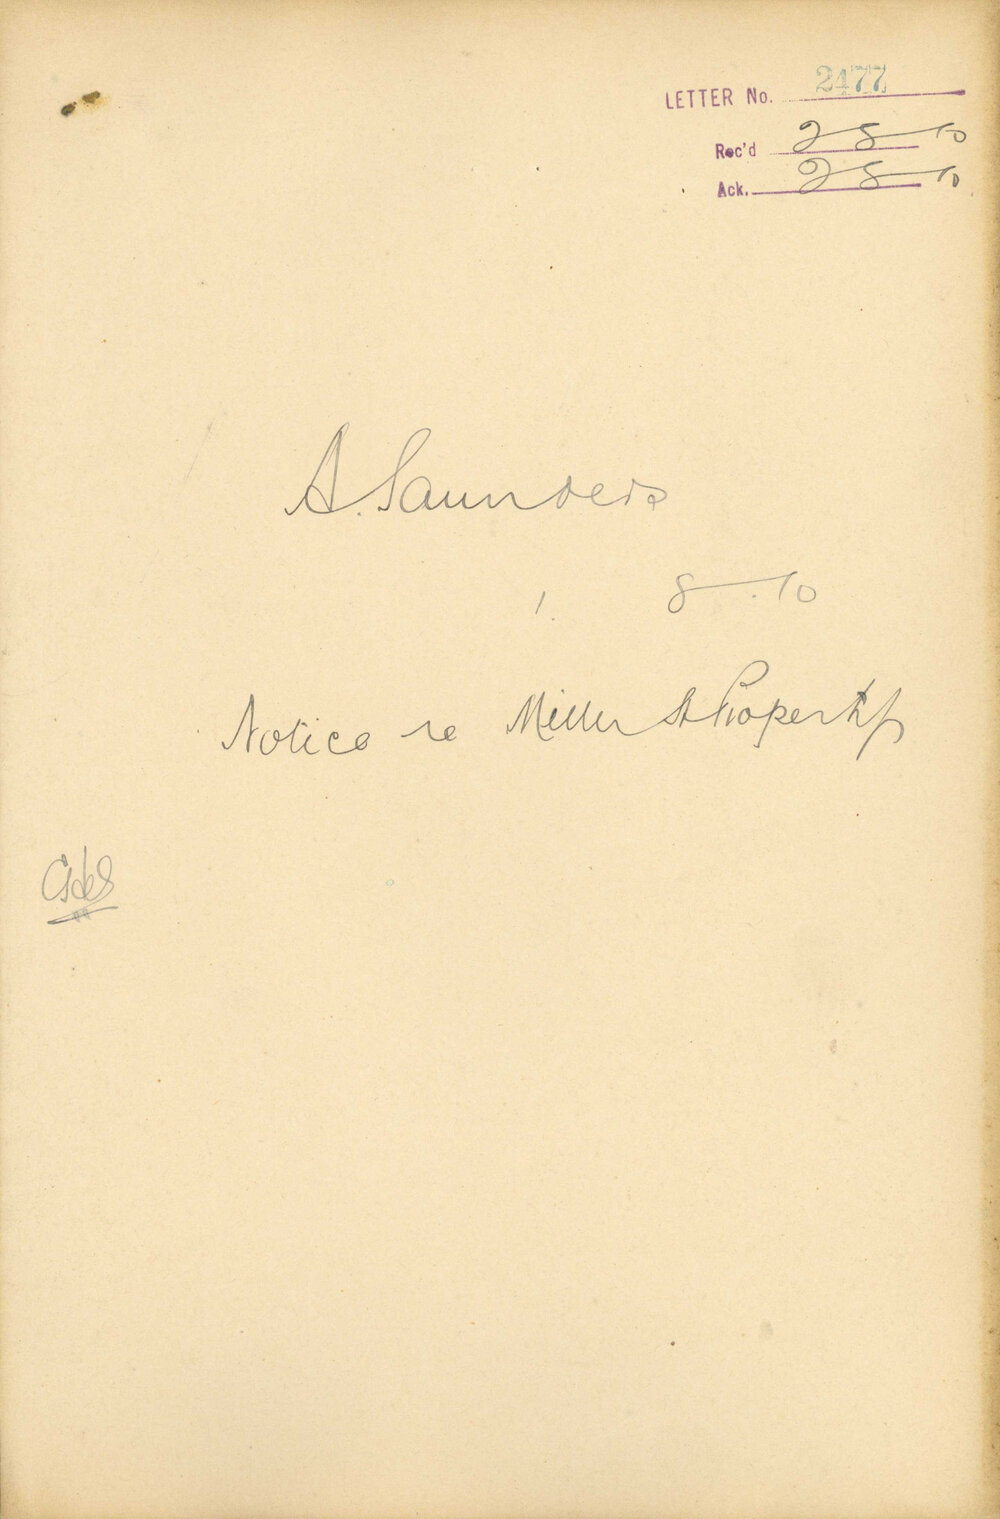 LETTER No. 2477
Rec'd 2 8 10
Ack. 2 8 10
A. Saunders
1. 8 . 10
Notice re Miller St Property